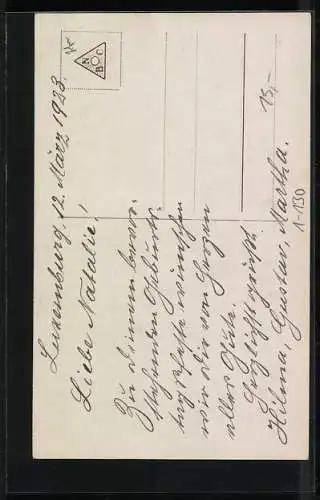 Luxemburg, 12. März 1923.
Liebe Natalie!
Zu Deinem bevor-
stehenden Geburts-
tagsfeste wünschen
wir Dir von Herzen
alles Gute.
Herzlichst grüßt
Hilma, Gustav, Martha.
N
B C
15,-
1-130